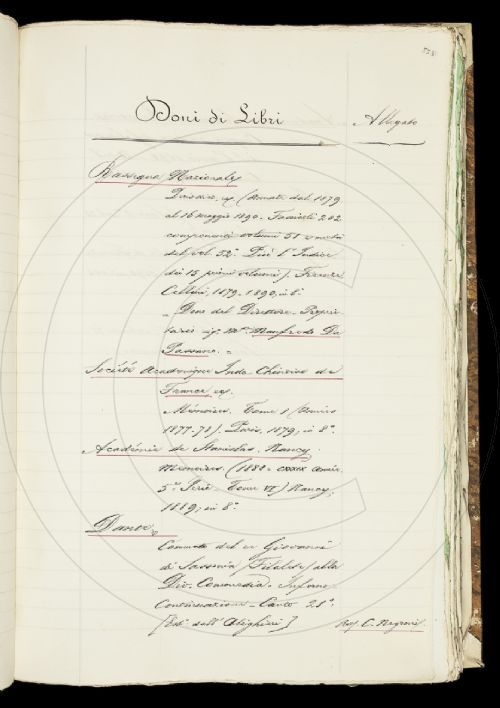 Doni di Libri
Allegato
Rassegna Nazionale
Direzione, ex (Annate dal 1879
al 16 maggio 1890. Fascicoli 202
componenti volumi 51 e metà
del vol. 52º. Più l'Indice
dei 15 primi volumi). Firenze
Cellini, 1879-1890, in 8º
Dono del Direttore-Proprie
tario sig. Mse. Manfredo Da
Passano.
Société Académique Indo-Chinoise de
France
Mémoires. Tome I (Années
1877-78). Paris, 1879; in 8º
Académie de Stanislas. Nancy.
Memoires (1888 - CXXXIX année
5e Série - Tome VI) Nancy,
1889; in 8º
Dante
Commento del re Giovanni
di Sassonia (Filalete) alla
Div. Commedia. Inferno
Continuazione - Canto 21º
[Ediz. dall'Alighieri]
Prof. C. Negroni